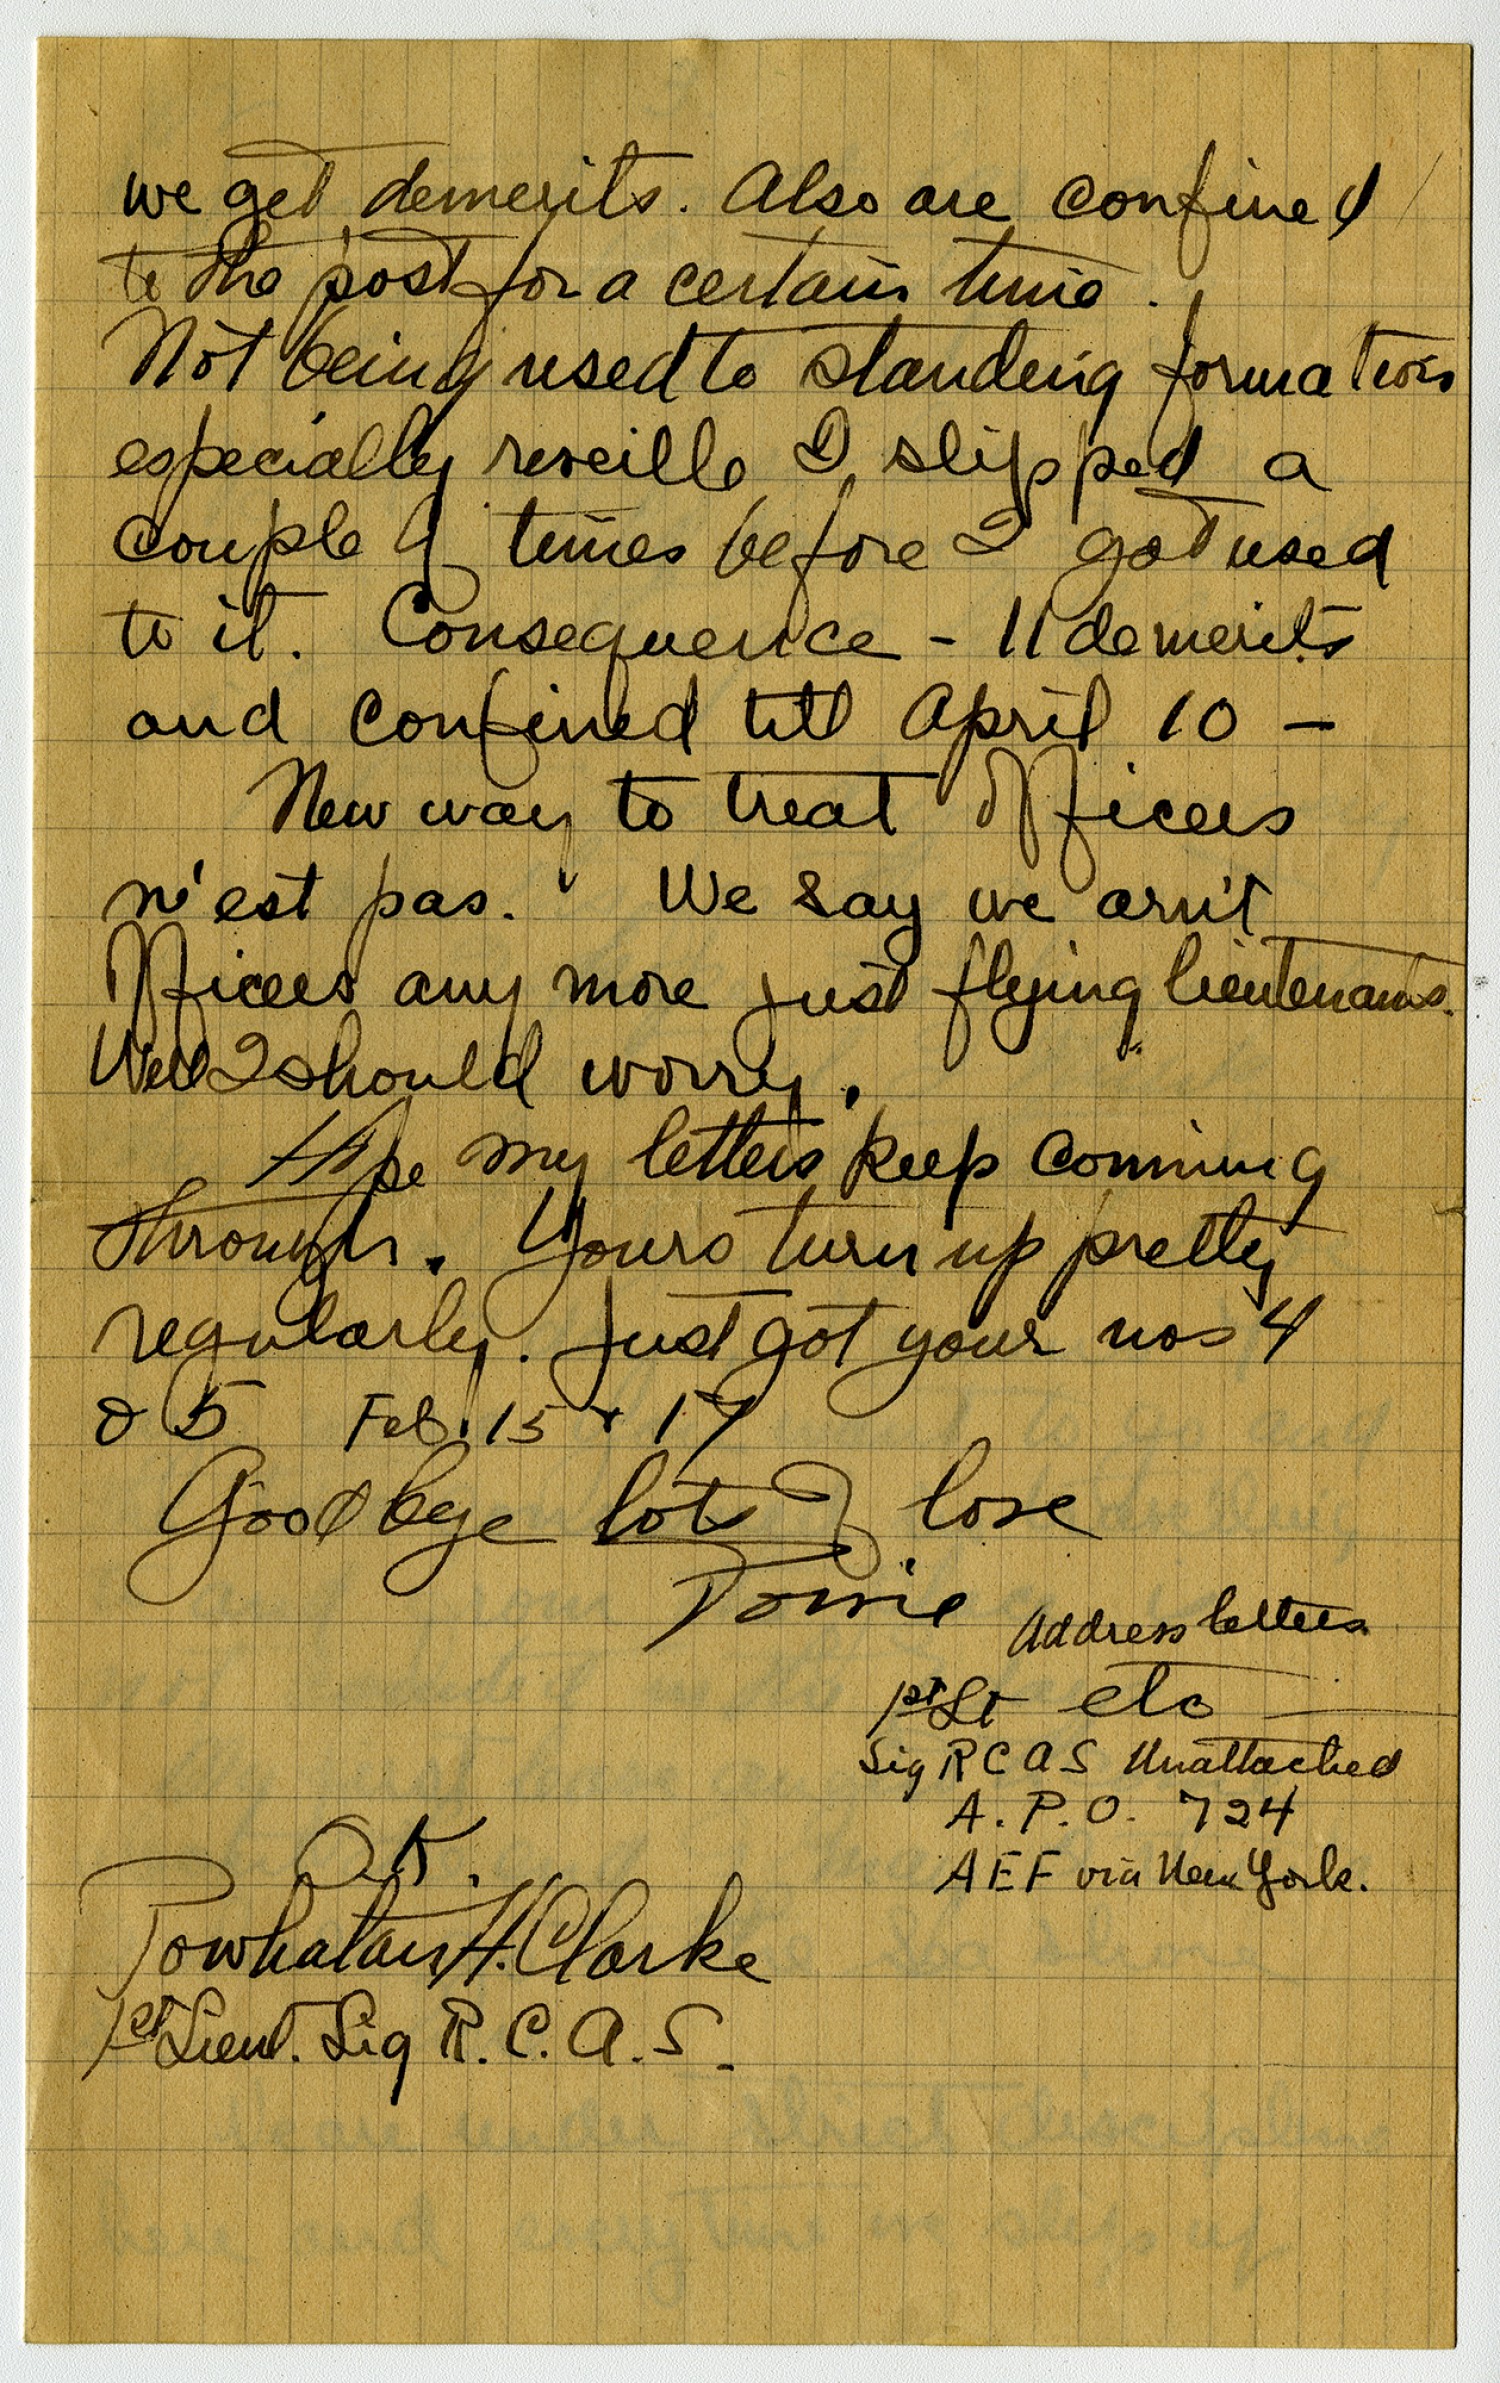 we get demerits. Also are confined
to the post for a certain time.
Not being used to standing formations
especially reveille I slipped a
couple of times before I got used
to it. Consequence - 11 demerits
and confined till April 10 -
New way to treat officers
n'est pas. We say we arn't
officers any more just flying lieutenants.
Well I should worry.
Hope my letters keep comming
through. Yours turn up pretty
regularly. Just got your nos 4
& 5 Feb. 15 & 17
Goodbye lots of love
Address letters
1st Lt etc
Sig R C A S Unattached
A.P.O. 724
AEF via New York.
O.K.
Powhatan H. Clarke
1st Lieut. Sig R.C.A.S.